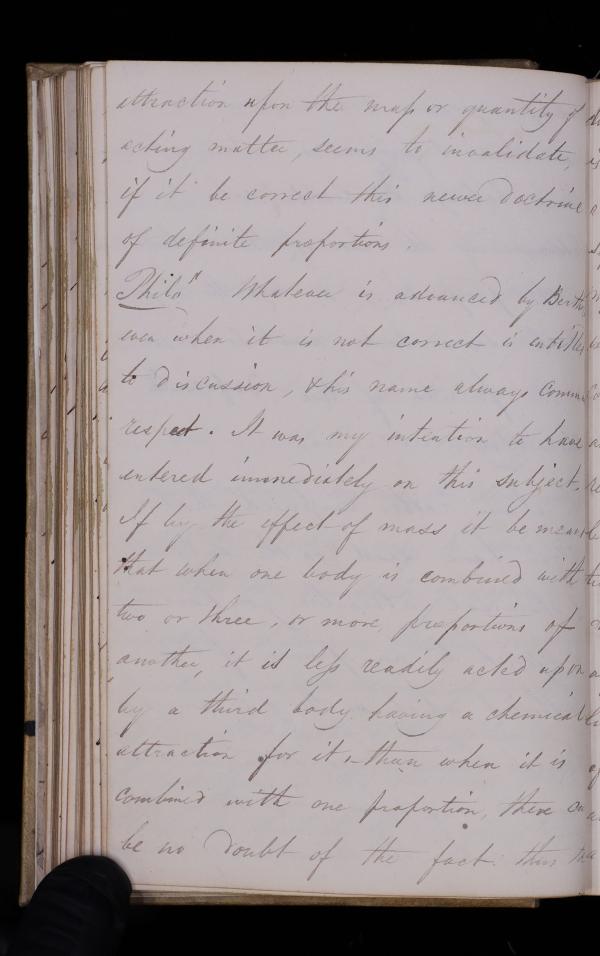 attraction upon the mass or quantity of
acting matter, seems to invalidate,
if it be correct this newer doctrine
of definite proportions.
Philo.n Whatever is advanced by Berth
even when it is not correct is entitled
to discussion, & his name always comm
respect. It was my intention to have
entered immediately on this subject.
If by the effect of mass it be mean
that when one body is combined with
two or three, or more proportions of
another, it is less readily acted upon
by a third body having a chemical
attraction for it, than when it is
combined with one proportion, there can
be no doubt of the fact. thus